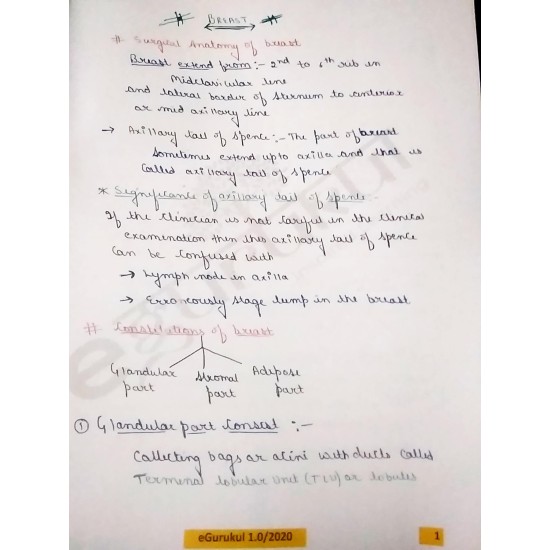 # BREAST #
# Surgical Anatomy of breast
Breast extend from:- 2nd to 6th rib in
Midclavicular line
and lateral border of sternum to anterior
or mid axillary line
→ Axillary tail of spence:- The part of breast
Sometimes extend upto axilla and that is
called axillary tail of spence
* Significance of axillary tail of spence -
If the clinician is not careful in the clinical
examination then this axillary tail of spence
can be confused with
→ Lymph node in axilla
→ Erroneously stage lump in the breast
# Constitutions of breast
Glandular part
Stromal part
Adipose part
① Glandular part Consist :-
Collecting bags or acini with ducts called
Terminal lobular unit (TLU) or lobules
eGurukul
eGurukul 1.0/2020
1